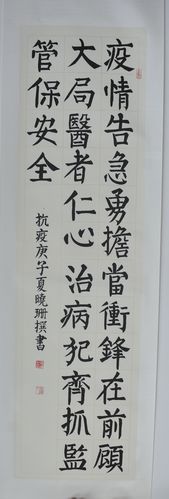 疫情告急勇擔當衝鋒在前顧
大局醫者仁心治病犯齊抓監
管保安全
抗疫庚子夏曉珊撰書